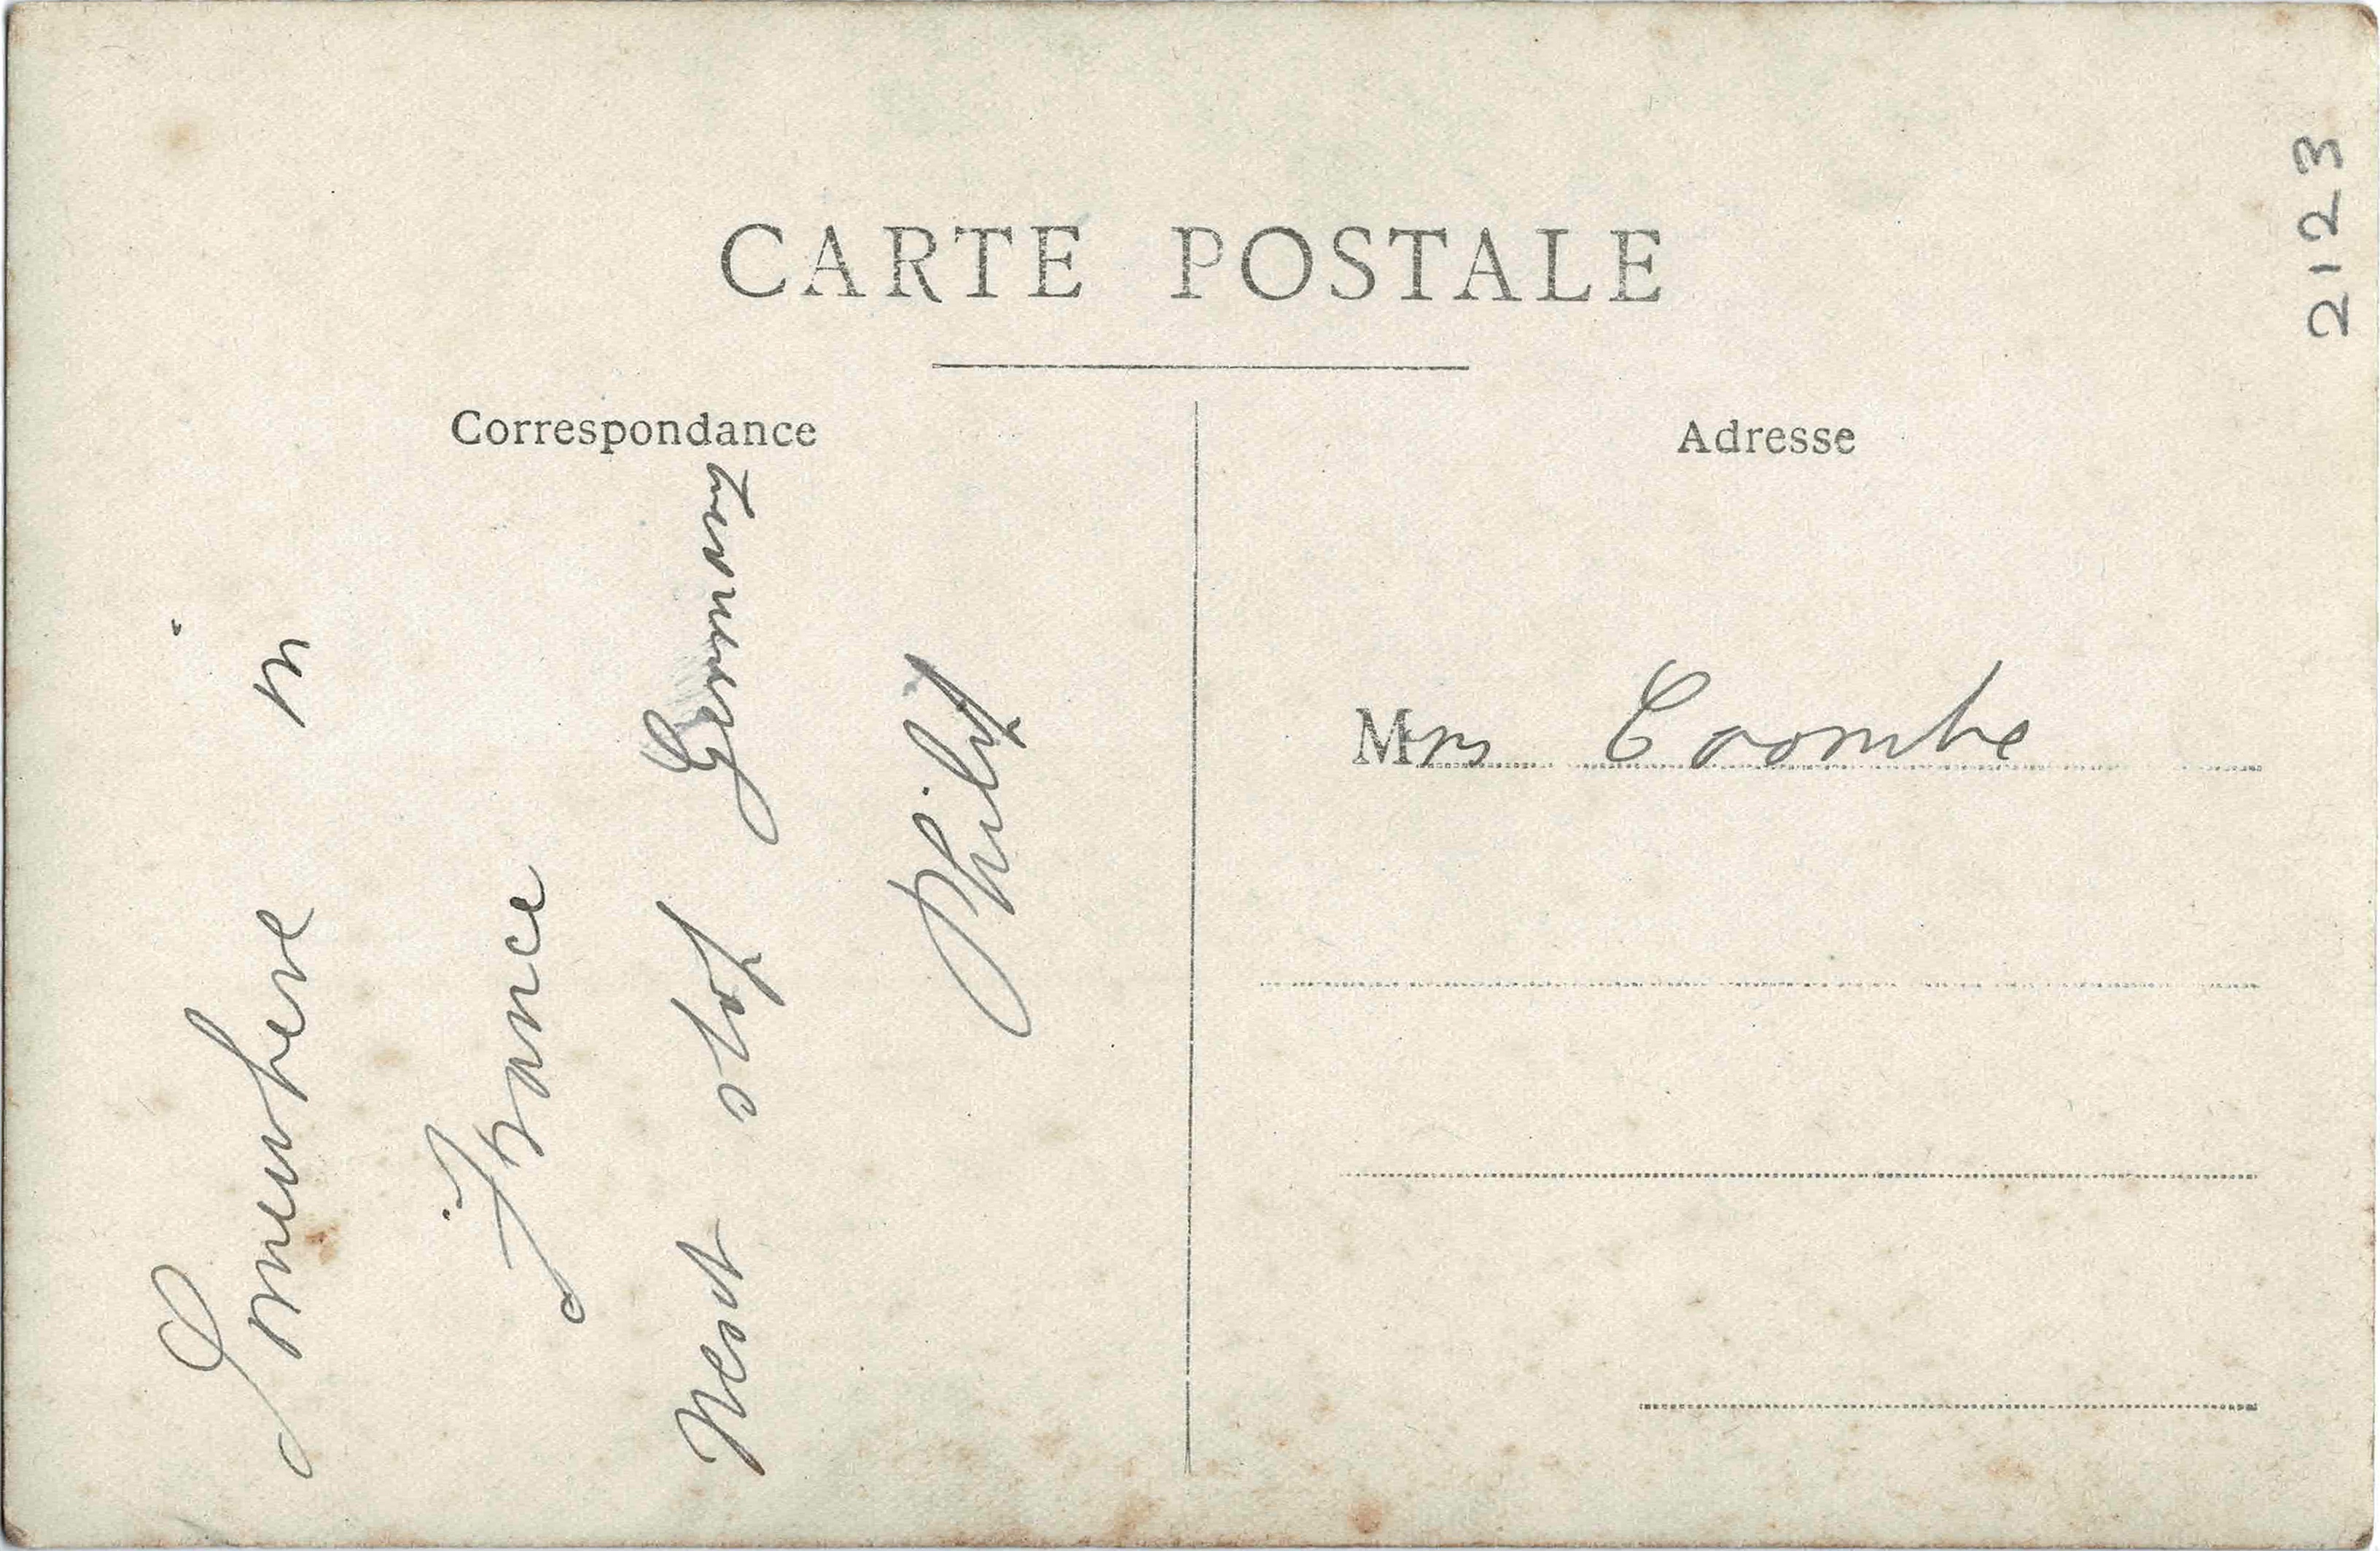 CARTE POSTALE
Correspondance
Adresse
Somewhere in
France
Next stop Germany
Philip
Mrs Coombe
2123